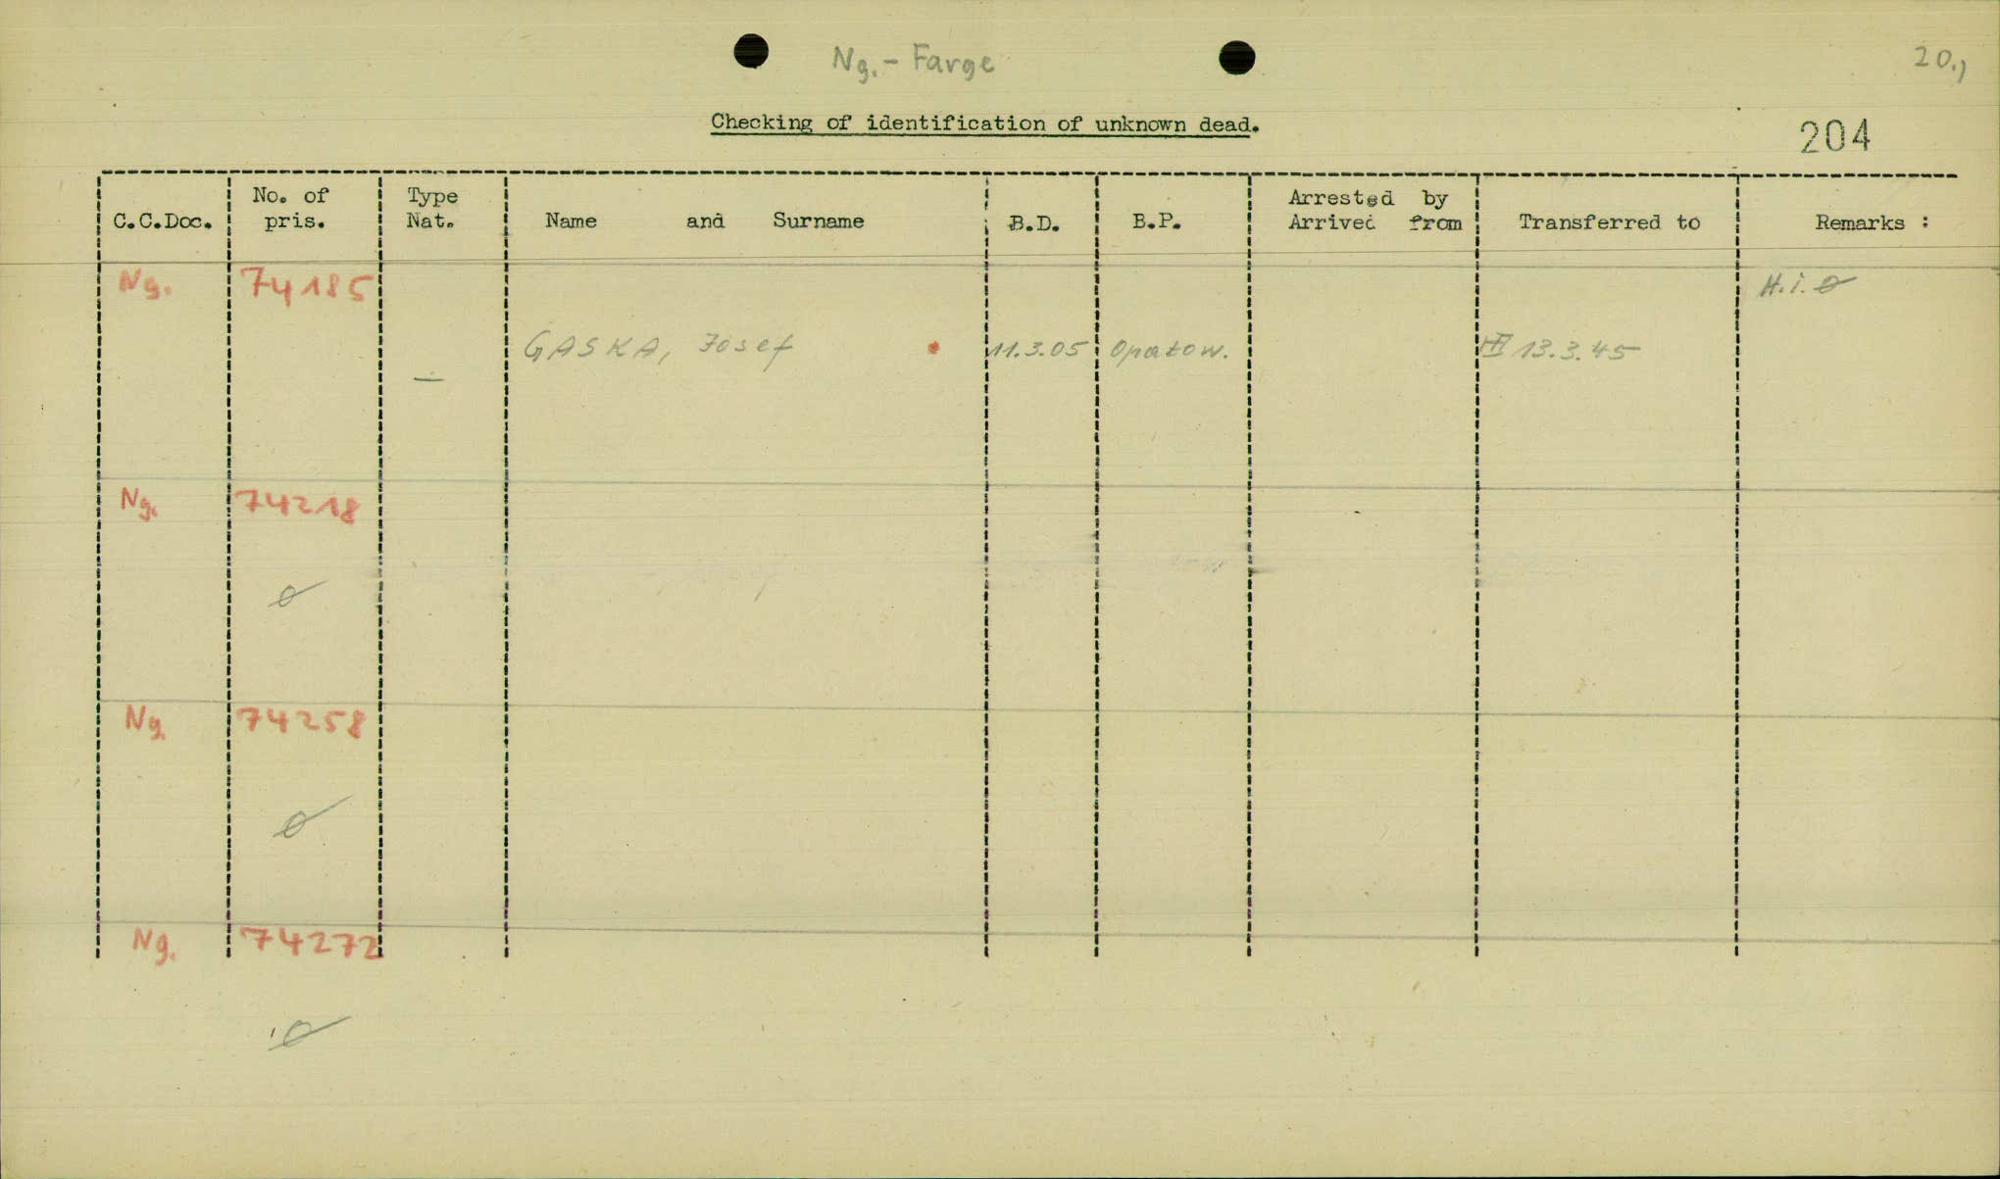 Ng.- Farge
20.)
Checking of identification of unknown dead.
204
C.C.Doc. No. of pris. Type Nat. Name and Surname B.D. B.P. Arrested by Arrived from Transferred to Remarks :
Ng. 74185 H.i. ø
— GASKA, Josef 11.3.05 Opatow. 13.3.45
Ng. 74218
ø
Ng. 74258
ø
Ng. 74272
ø